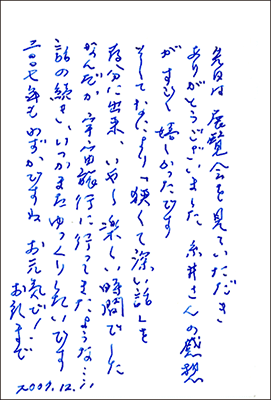 先日は 展覧会を見ていただき
ありがとうございました 糸井さんの感想
がすごく 嬉しかったです
そしてなにより「狭くて深い話」を
存分に出来、いや〜 楽しい時間でした
なんだか 宇宙旅行に行ってきたような…!
話の続き、いつかまたゆっくりしたいです
二〇〇七年も わずかですね お元気で!
お礼まで
2007.12.